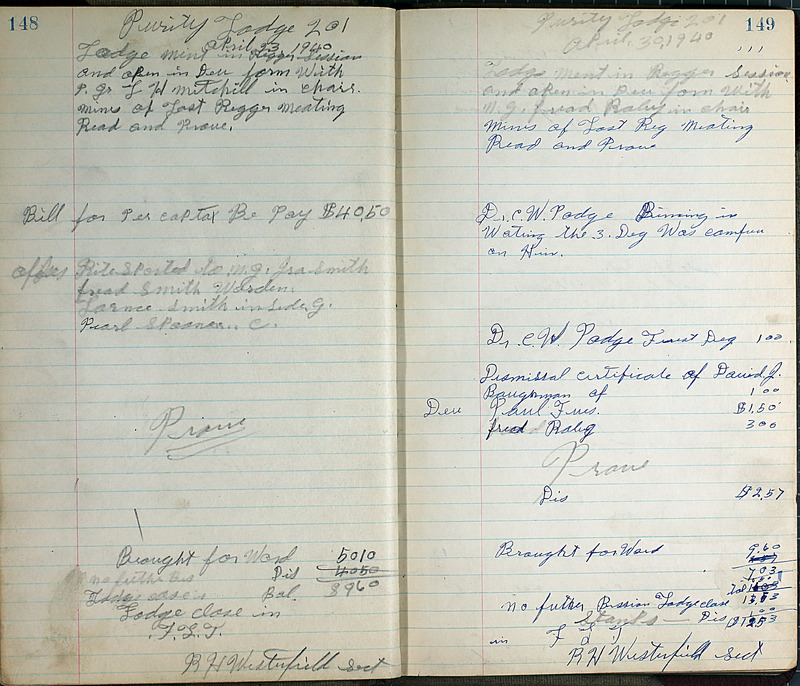 148
Purity Lodge 201
April 23, 1940
Lodge ment in Regger Session
and open in Deu form With
P. Gr L H mitchill in chair.
mins of Last Regger Meating
Read and Prove.
Bill for Per cap tax Be Pay $40.50
offices Rite S Ported to N.G. Ira Smith
fread Smith Warden.
Larnce Smith inside G.
Pearl Spooner. C.
Prove
Brought for Word 5010
Dis 4050
Lodge case Bal. 8960
Lodge close in
F.L.T.
R H Westerfield Sect
149
Purity Lodge 201
April, 30, 1940
Lodge ment in Regger Session
and open in Deu form With
N.G. fread Raby in chair
mins of Last Reg Meating
Read and Prove
Dr. C. W. Podge Binning in
Wating the 3. Deg Was comfun
on Him.
Dr. C. W. Podge Furst Deg 100
Dismissal certificate of David J.
Baughman of 100
Deu Paul Ives $1.50
fread Raby 300
Prove
Dis $2.57
Brought for Word 9.60
703
no futher Bission Lodge close
Stanks Dis
in F L T
R H Westerfield Sect